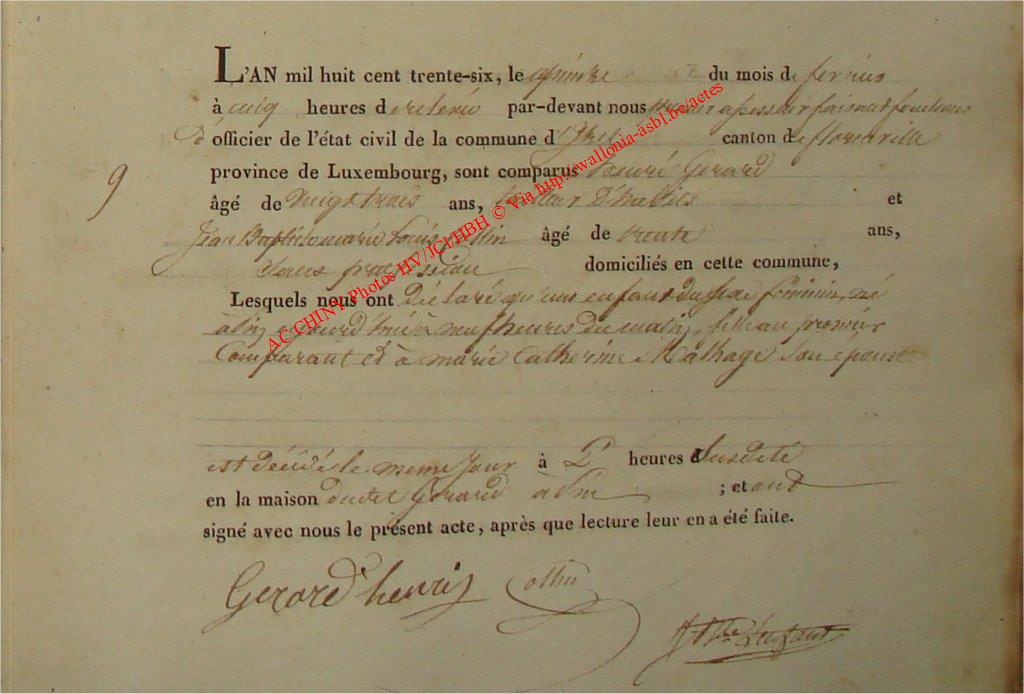 L'AN mil huit cent trente-six, le quinze du mois de fevrier
à cinq heures de relevée par-devant nous assesseur faisant fonctions
d'officier de l'état civil de la commune d'Izel canton de florenville
9
province de Luxembourg, sont comparus henri Gerard
âgé de vingt trois ans, tailleur D'habits et
Jean Baptiste marie Louis Collin âgé de trente ans,
Sans profession domiciliés en cette commune,
Lesquels nous ont Déclaré qu'un enfant du sexe feminin, né
à pin aujourd'hui à neuf heures du matin, fille au premier
Comparant et à marie Catherine son épouse
est décédé le meme jour à 2 heures Susdite
en la maison dudit Gerard à pin ; et ont
signé avec nous le présent acte, après que lecture leur en a été faite.
Gerard henri Collin
AC CHINY Photos HV/JCI/HBH © Via http://wallonia-asbl.be/actes